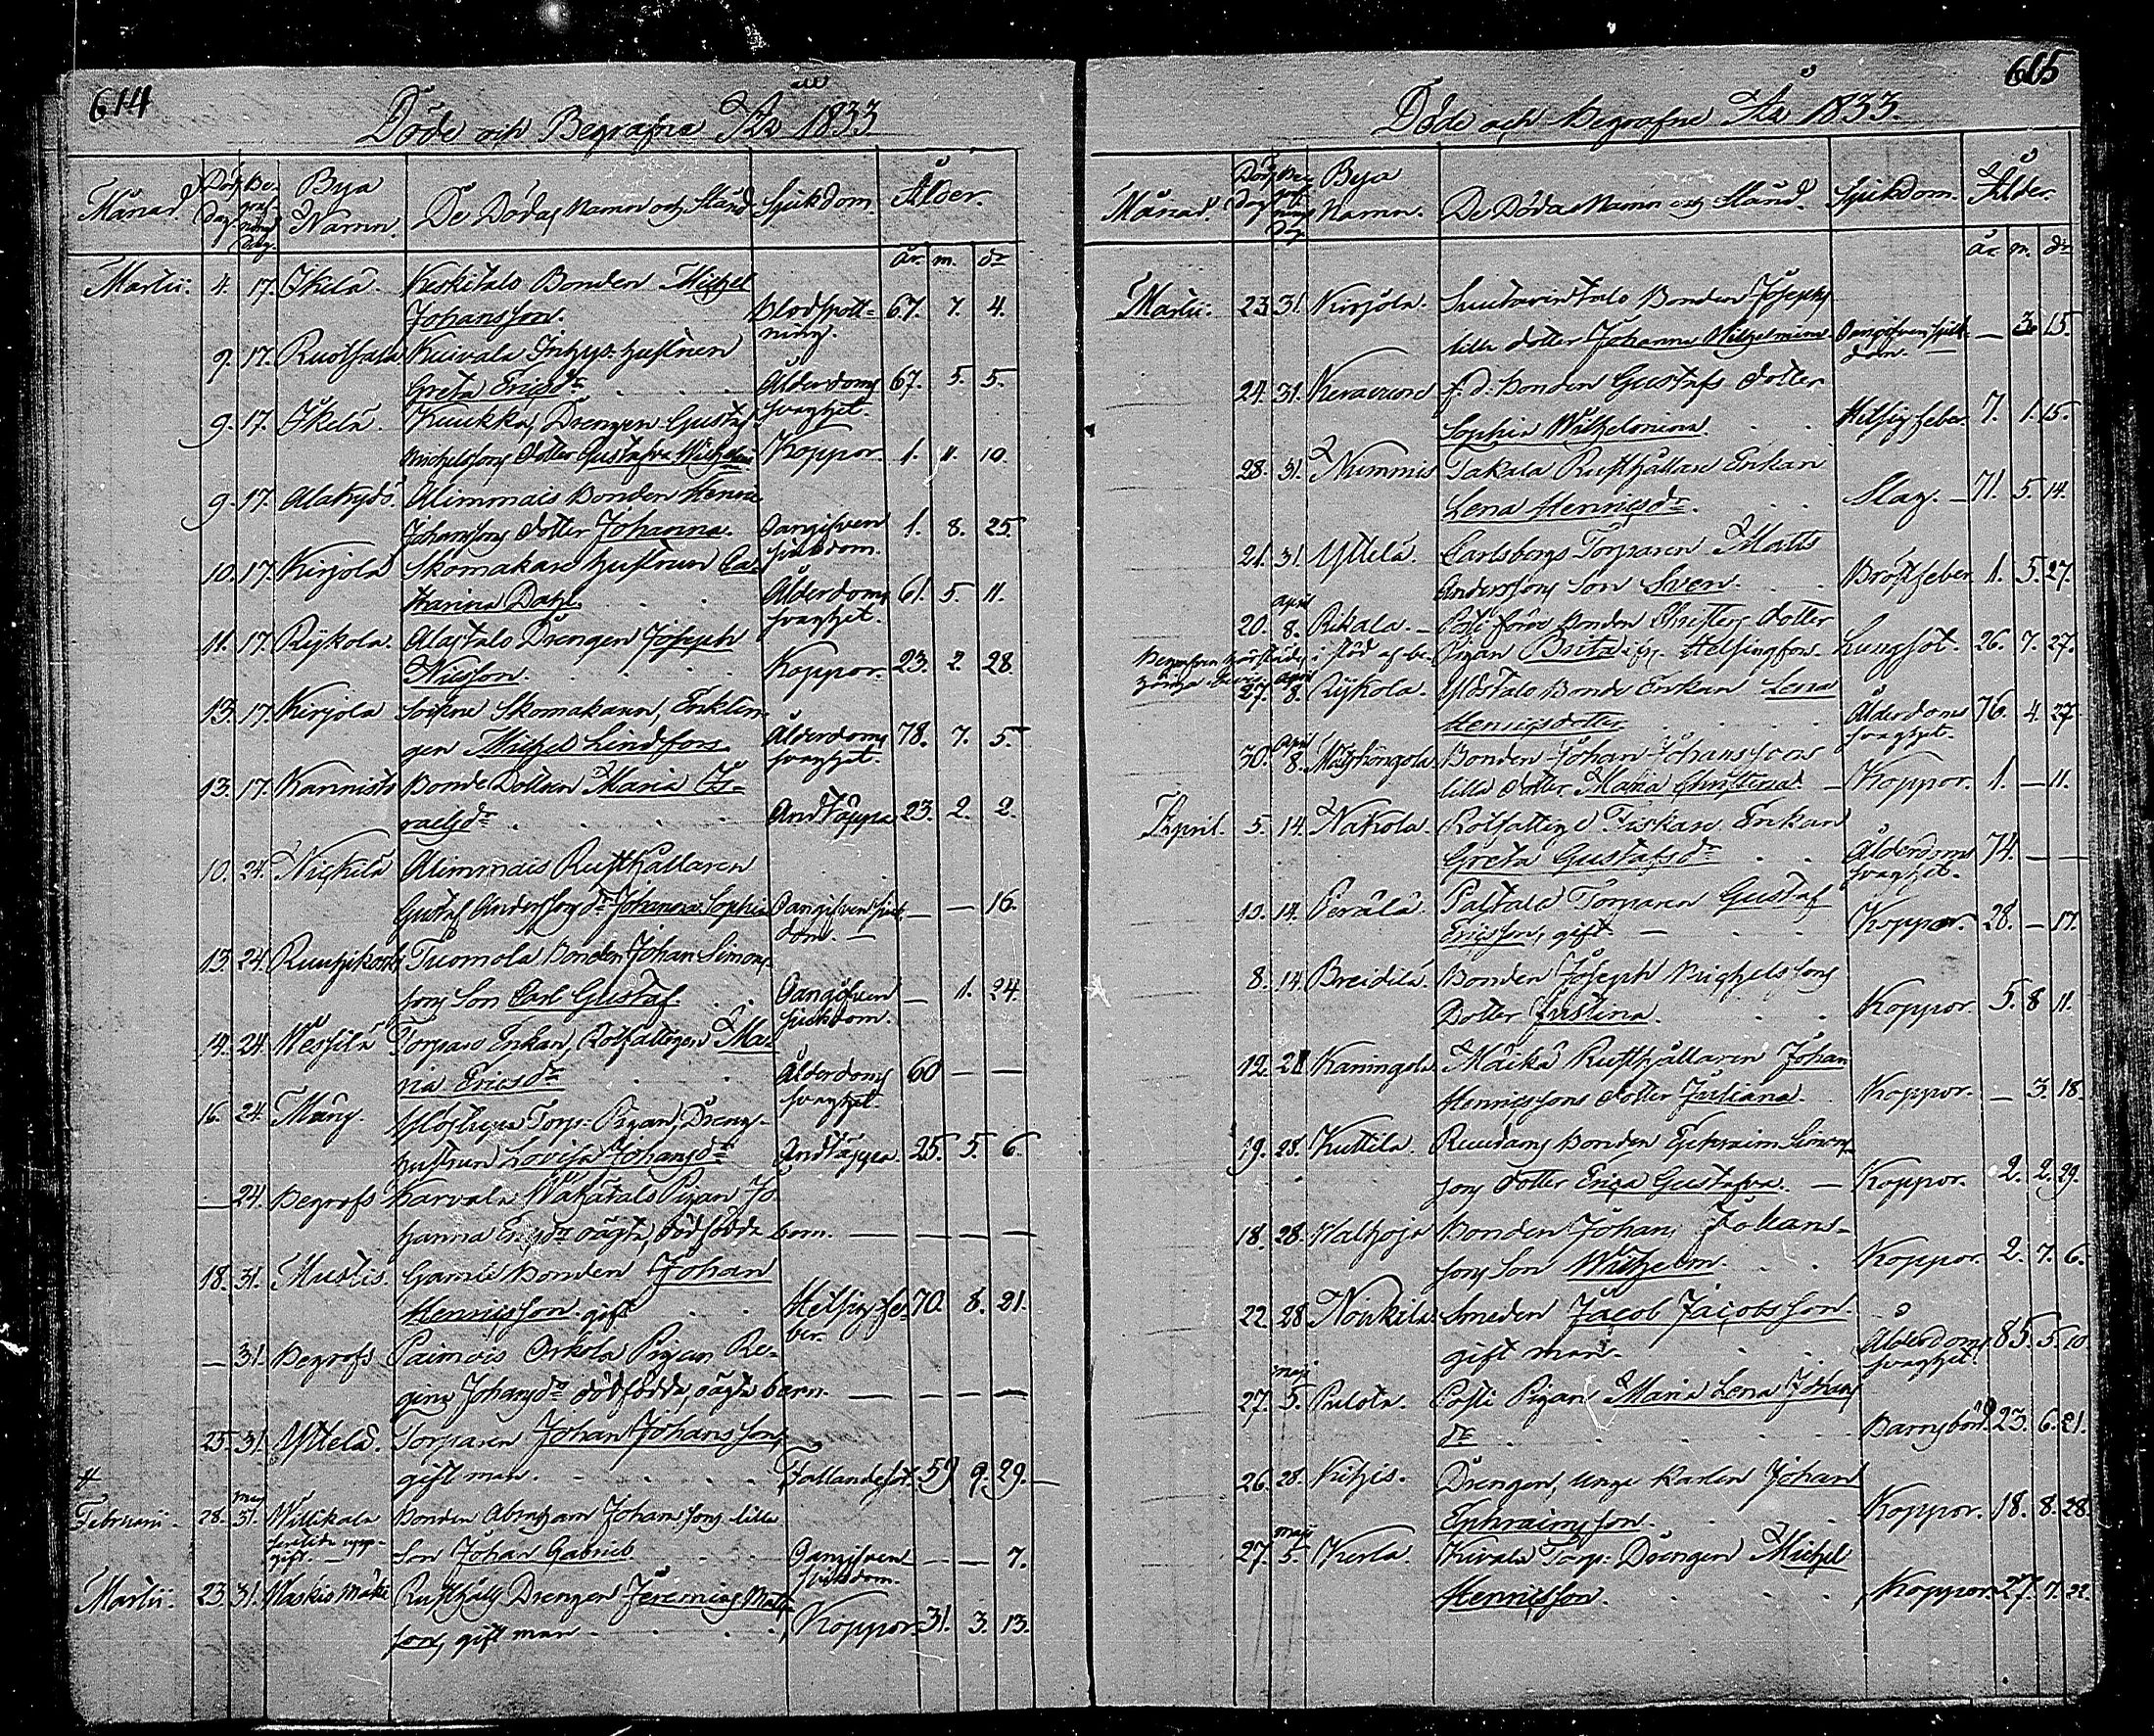 614
Döde och Begrafne År 1833
Månad. Död Dag. Begrafnings Dag. Bya Namn. De Dödas Namn och Stånd Sjukdom. Ålder.
år. m. dr
Martii. 4. 17. Ikelä. Keskitalo Bonden Michel
Johansson. Blodspott- 67. 7. 4.
ning.
9. 17. Ruothala Kuivala Inhys hustrun
Greta Ericsdr Ålderdoms 67. 5. 5.
svaghet.
9. 17. Ikelä. Kuukka, Drengen Gustaf
Michelsons Dotter Gustafva Wilhelmi Koppor. 1. 11. 10.
9. 17. Alakydö. Alimmais Bonden Henric
Johanssons dotter Johanna. Oangifven 1. 8. 25.
sjukdom.
10. 17. Kirjola Skomakare hustrun Ca-
tharina Dahl. Ålderdoms 61. 5. 11.
svaghet.
11. 17. Rykola. Alastalo Drengen Joseph
Nilsson. Koppor. 23. 2. 28
13. 17. Kirjola Sockne Skomakaren, Enklin-
gen Michel Lindfors. Ålderdoms 78. 7. 5.
svaghet.
13. 17. Kannisto Bonde Dottren Maria Is-
raelsdr Andtäppa 23. 2. 2.
10. 24. Nickilä Alimmais Rusthållaren
Gustaf Anderssons dr Johanna Sophia Oangifven sjuk- — — 16.
dom. —
13. 24. Ruutikoski Tuomola Bonden Johan Simons-
sons Son Carl Gustaf. Oangifven — 11. 24.
sjukdom.
14. 24. Wessilä Torpare Enkan, Rotfattigen Ma-
ria Ericsdr Ålderdoms 60 — —
svaghet.
16. 24. Mäny. Torp. Pigan, Drengs-
hustrun Lovisa Johansdr Andtäppa. 25. 5. 6.
— 24. Begrofs Karvala Wähätalo Pigan Jo-
hanna oägta, dödfödda barn. — — — —
18. 31. Mustis. Gamle Bonden Johan
Henricsson. gift Hetsig fe- 70. 8. 21.
ber.
— 31. Begrofs Paimois Orkola Pigan Re-
gina Johansdr dödfödda, oägta barn. — — — —
25. 31. Yttelä. Torparen Johan Johansson,
gift man. Fallandesot. 59 9. 29.
Februarii. 28. 31. Willikala Bonden Abraham Johanssons lilla
gift. son Johan Gabriel. Oangifven — — 7.
sjukdom.
Martii. 23. 31. Waskio Mäki Rusthålls Drengen Jeremias Mats-
son, gift man Koppor. 31. 3. 13.
615
Döde och Begrafne År 1833.
Månad. Död Dag Begrafnings Dag Bya Namn. De Dödas Namn och Stånd. Sjukdom. Ålder.
år m. dr
Martii. 23 31. Kirjola. Bonden Josephs
lilla dotter Johanna Wilhelmina Oangifven sjuk- — 3. 15.
dom. —
24. 31. f. d. Bonden Gustafs dotter
Sophia Wilhelmina. Hetsig feber. 7. 1. 15.
28. 31. Nummis Takala Rusthållare Enkan
Lena Henricsdr Slag. 71. 5. 14.
21. 31 Yttelä. Carlsbergs Torparen Matts
Anderssons Son Sven. Bröstfeber 1. 5. 27.
april
20. 8. Rikala. — dotter
Pigan Brita Helsingfors. Lungsot. 26. 7. 27.
april
27. 8. Rykola. Ylöstalo Bonde Enkan Lena
Henricsdotter. Ålderdoms 76. 4. 27.
svaghet.
april
30. 8. Bonden Johan Johanssons
lilla dotter Maria Christina. Koppor. 1. — 11.
April. 5. 14. Nakola. Rotfattige Fiskare Enkan
Greta Gustafsdr Ålderdoms 74. — —
svaghet.
10. 14. Perälä. Paltala Torparen Gustaf
Ericsson, gift — Koppor. 28. — 17.
8. 14. Breidilä Bonden Joseph Michelssons
Dotter Justina. Koppor. 5. 8 11.
12. 21 Kaningola. Mäikä Rusthållaren Johan
Henricssons dotter Juliana. Koppor. — 3. 18.
19. 28. Kuttila. Ruudans Bonden Ephraim Simons-
sons dotter Erica Gustafva. — Koppor. 2. 2. 29.
18. 28. Walhoja Bonden Johan Johans-
sons Son Wilhelm. Koppor. 2. 7. 6.
22. 28 Noukila Smeden Jacob Jacobsson.
gift man. Ålderdoms 85. 5. 10
svaghet.
maji
27. 5. Pulola. Posti Pigan Maria Lena Johans
dr Barnsbörd. 23. 6. 21.
26. 28. Kihis. Drengen, unge Karlen Johan
Ephraimsson. Koppor. 18. 8. 28.
maji
27. 5. Kerla. Kivala Torp. Drengen Michel
Henricsson. Koppor. 27. 7. 22.